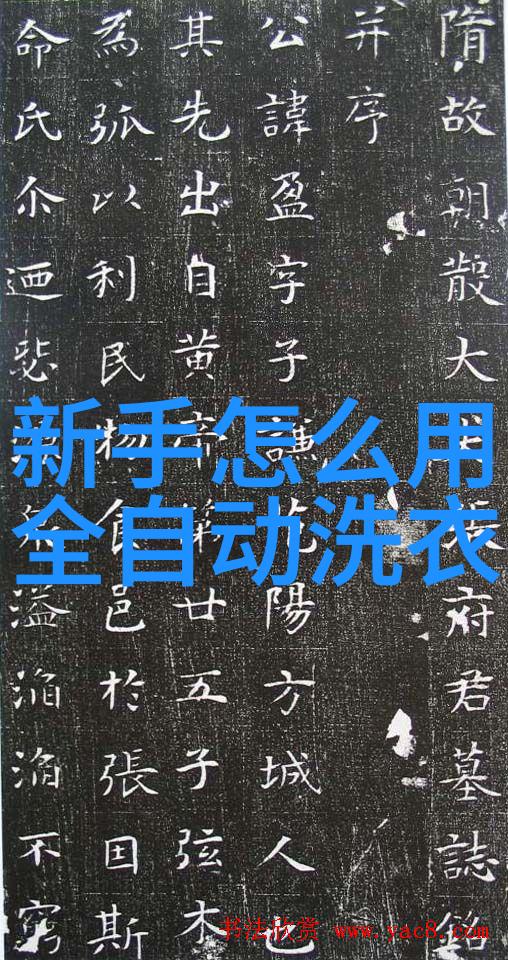 隋故朝散大夫張府君墓誌銘
并序
公諱盈字子謙范陽方城人也
其先出自黃帝第廿五子弦木
為弧以利民物食邑於張因斯
命氏尒迺悲溢滔滔不窮
新手怎么用
全自动洗衣
书法欣赏 www.yac8.com